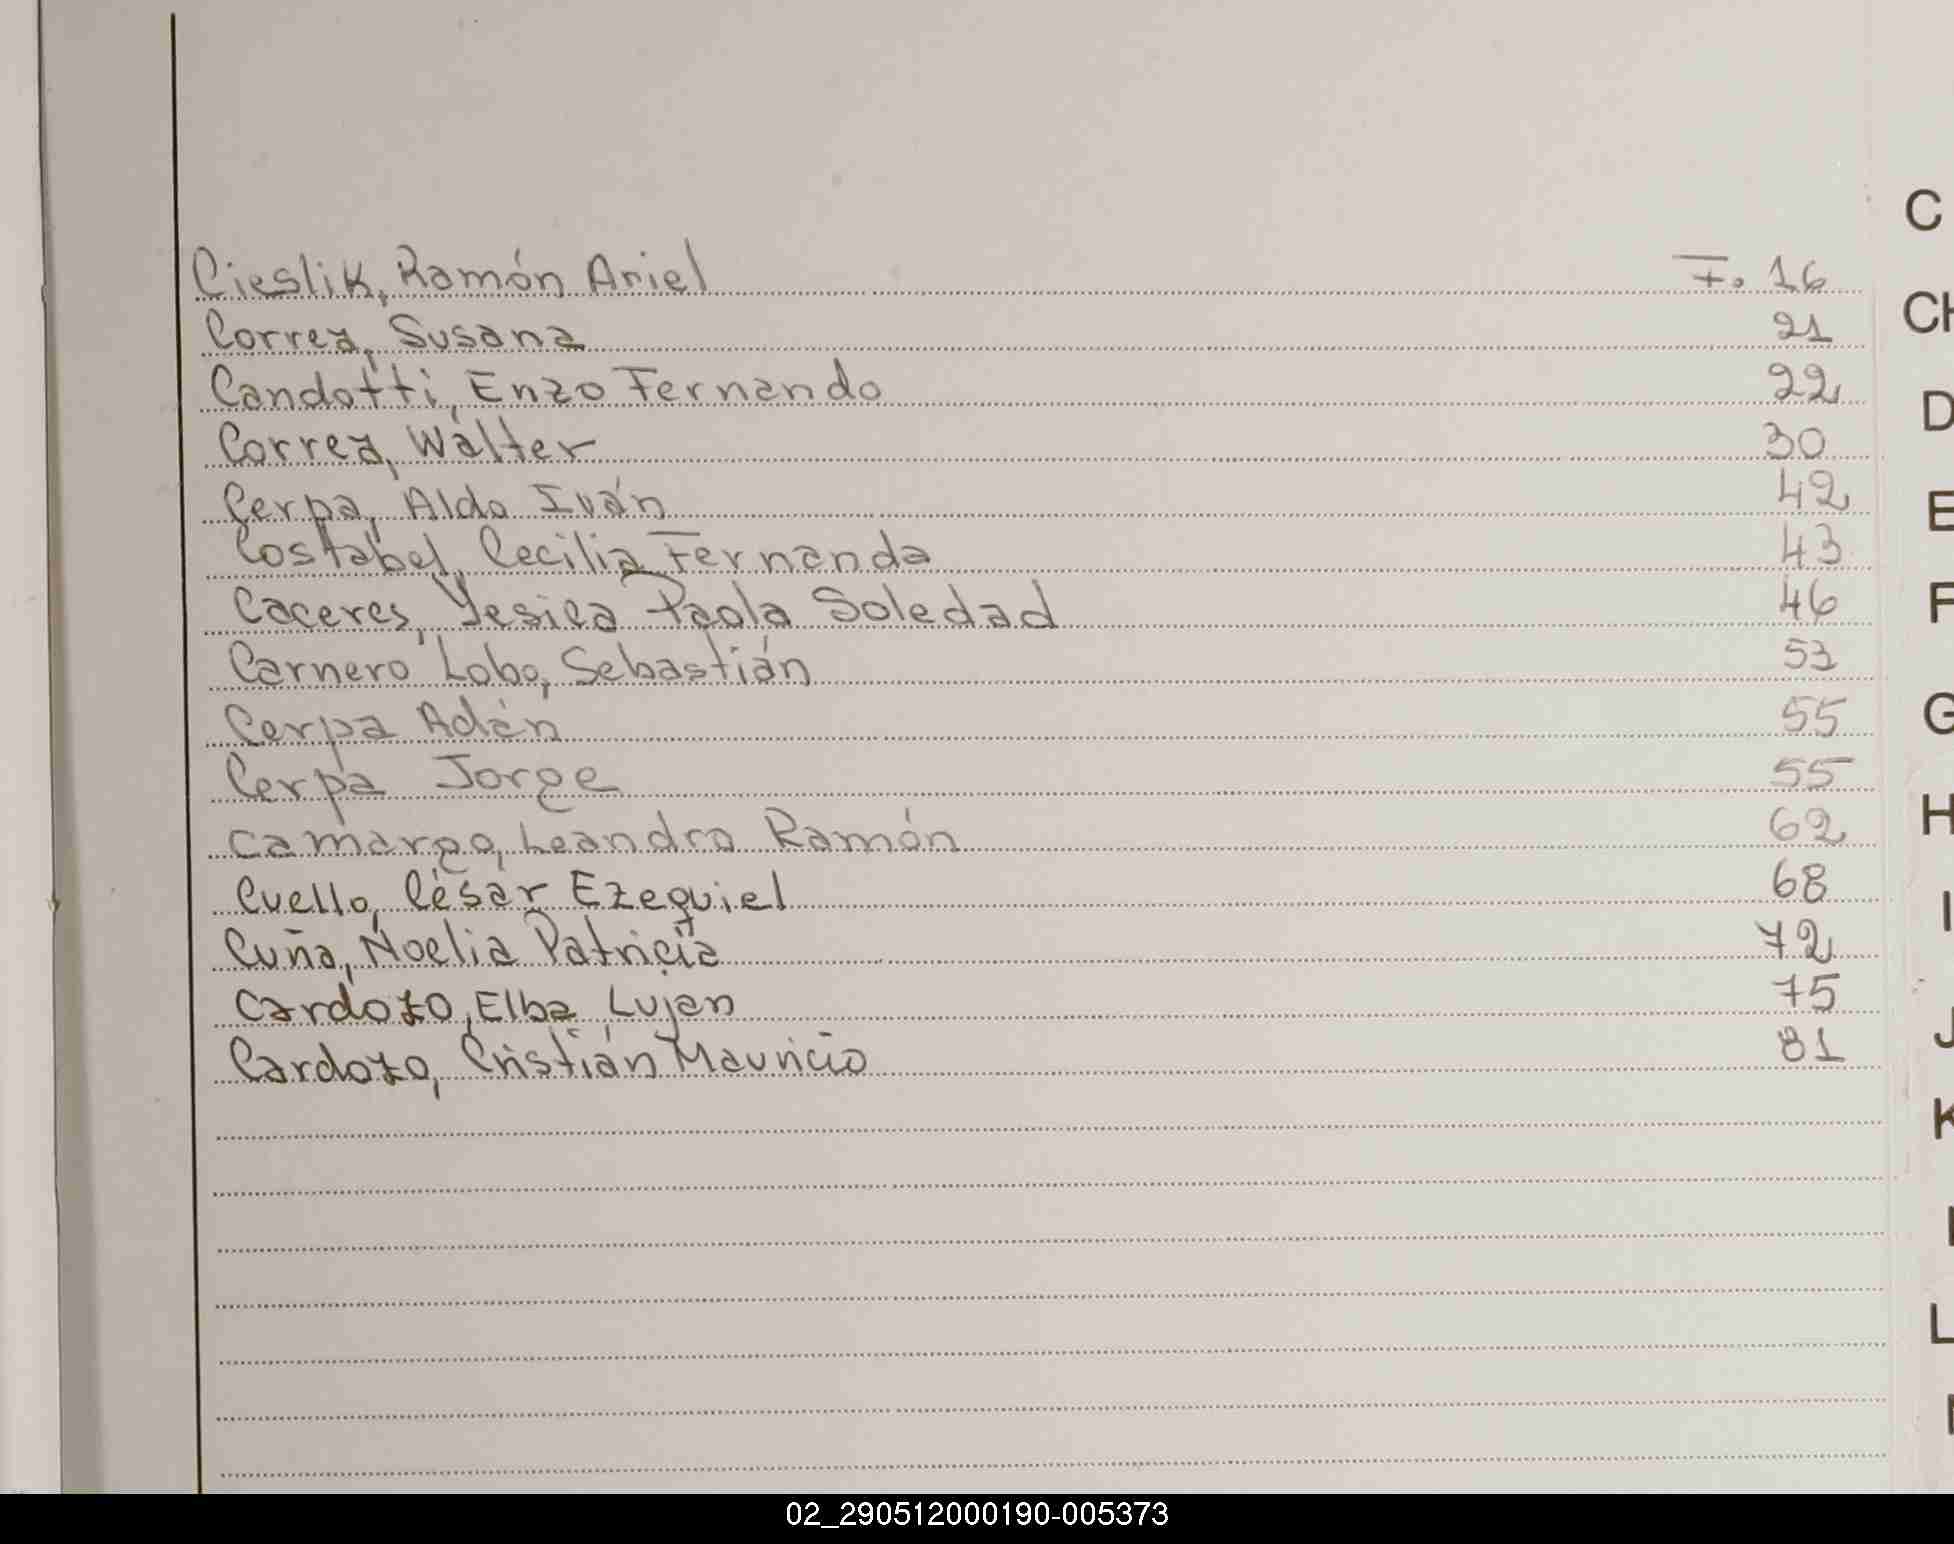 Cieslik, Ramón Ariel F. 16
Correa, Susana 21
Candotti, Enzo Fernando 22
Correa, Wálter 30
Cerpa, Aldo Iván 42
Costabel, Cecilia Fernanda 43
Caceres, Yesica Paola Soledad 46
Carnero Lobo, Sebastián 53
Cerpa Adán 55
Cerpa Jorge 55
Camargo, Leandro Ramón 62
Cuello, César Ezequiel 68
Cuña, Noelia Patricia 72
Cardozo, Elba Lujan 75
Cardozo, Cristián Mauricio 81
C
CH
D
E
F
G
H
I
J
K
L
02_290512000190-005373